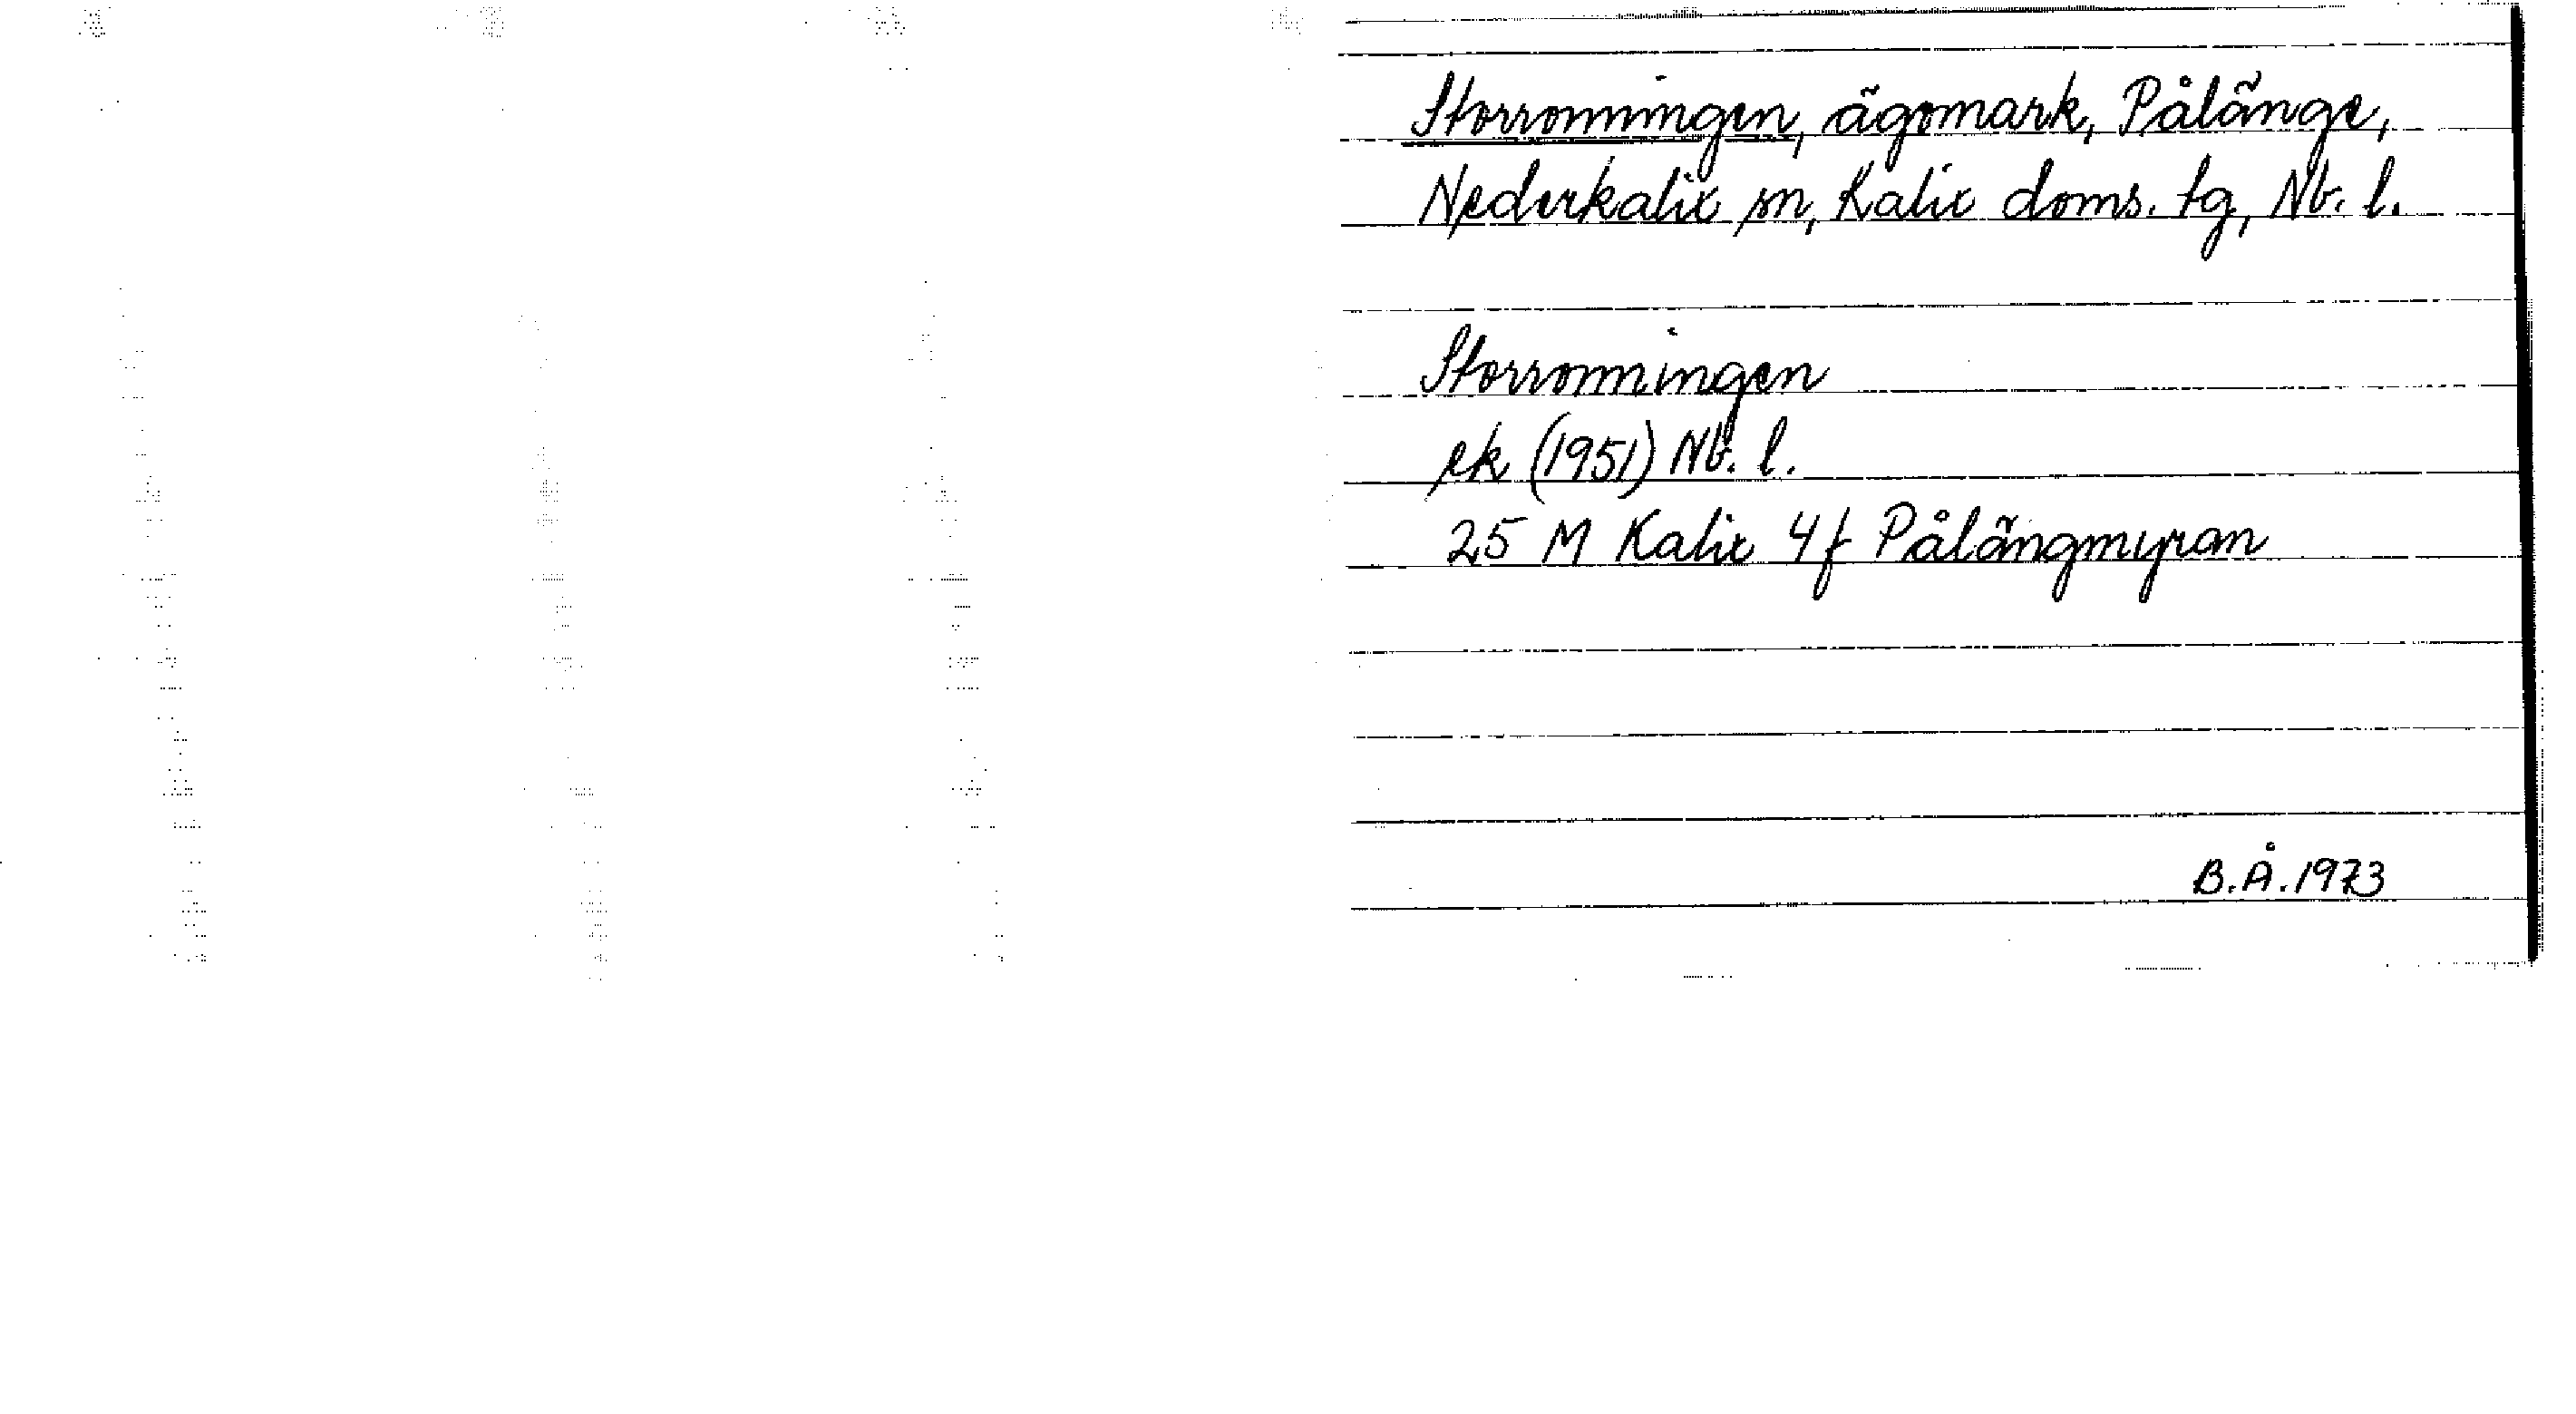 Storronningen, ägomark, Pålänge,
Nederkalix sn, Kalix doms. tg, Nb. l.
Storronningen
ek (1951) Nb. l.
25 M Kalix 4f Pålängmyran
B.Å.1973